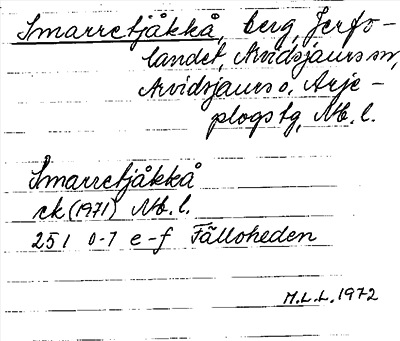 Smarretjåkkå, berg, Jerfo-
landet, Arvidsjaurs sn,
Arvidsjaurs o. Arje-
plogs tg, Nb. l.
Smarretjåkkå
ek (1971) Nb. l.
25 I 0-7 e-f Fälloheden
M.L.L. 1972